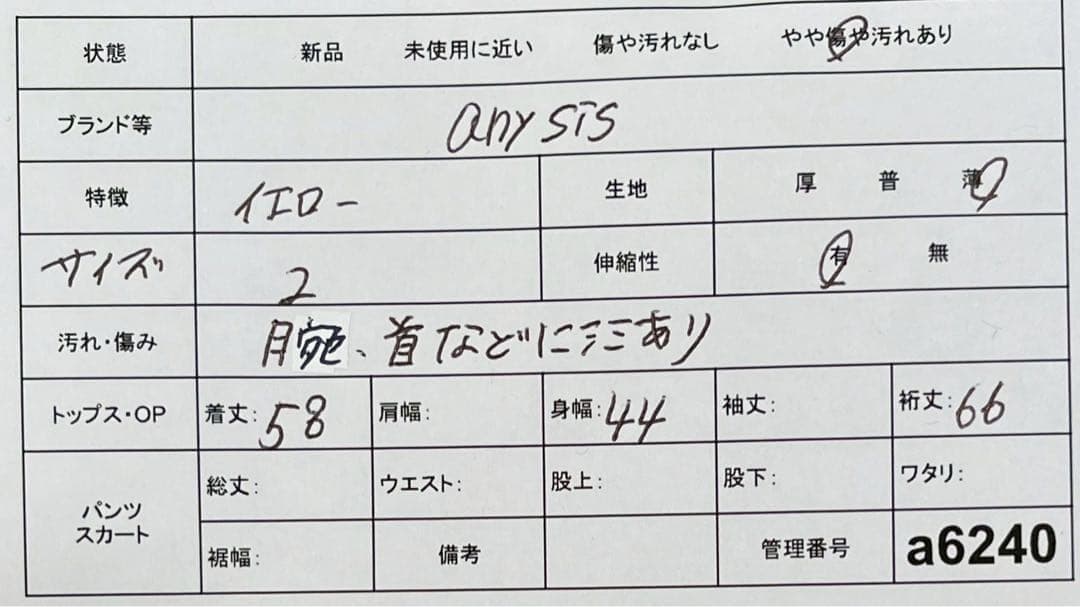 状態 新品 未使用に近い 傷や汚れなし やや傷や汚れあり
ブランド等 any sis
特徴 イエロー 生地 厚 普 薄
サイズ 2 伸縮性 有 無
汚れ・傷み 腕、首などにシミあり
トップス・OP 着丈:58 肩幅: 身幅:44 袖丈: 裄丈:66
パンツ
スカート
総丈: ウエスト: 股上: 股下: ワタリ:
裾幅: 備考 管理番号 a6240